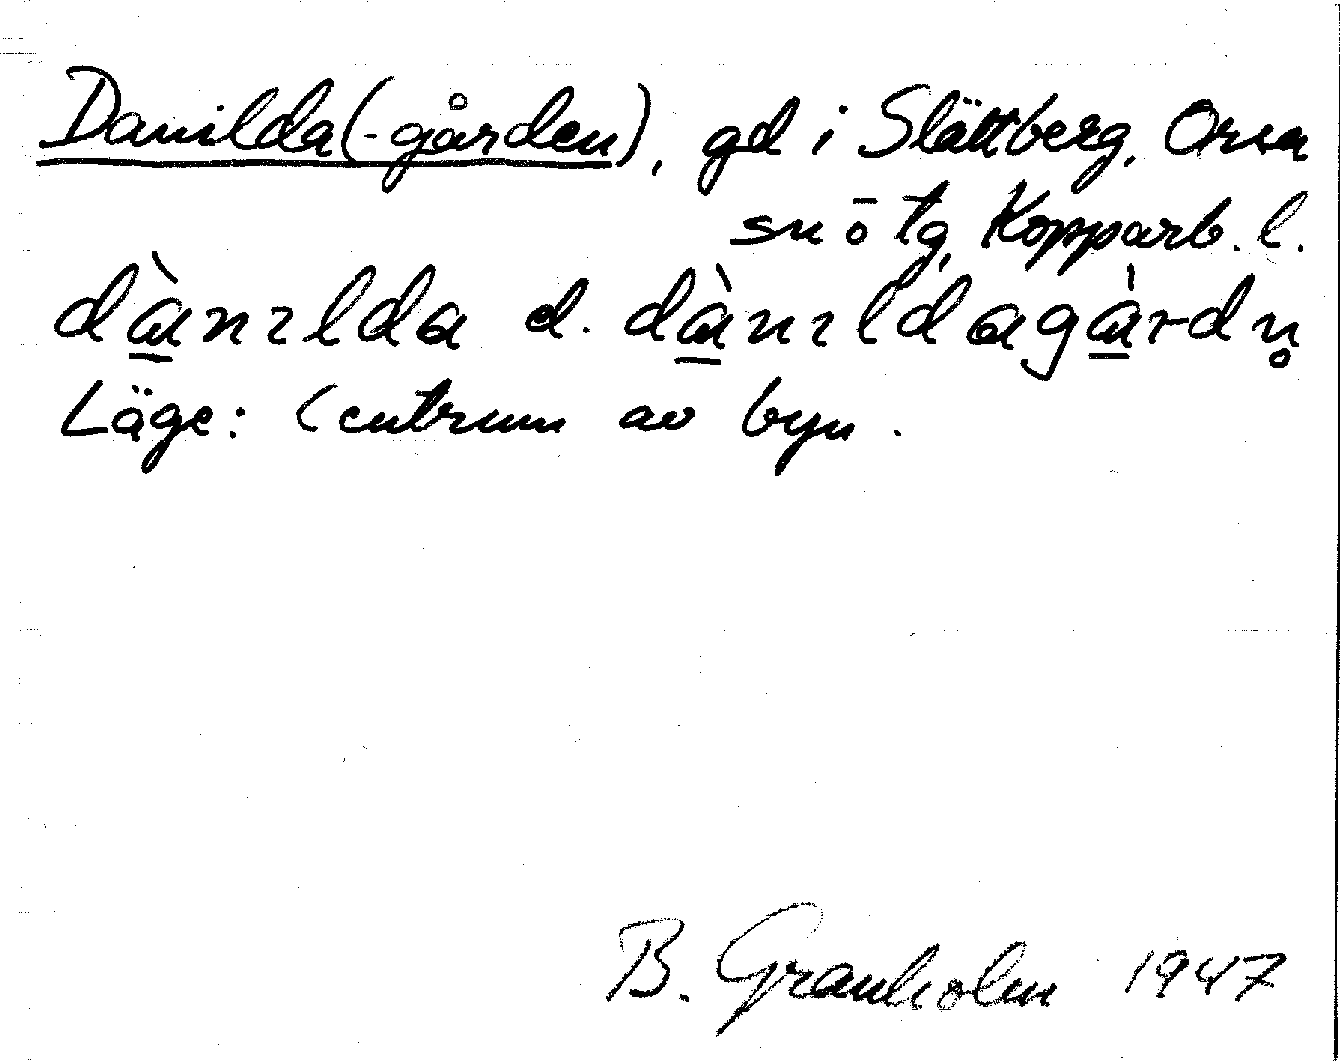 Danilda(-gården), gd i Slättberg, Orsa
sn ö tg, Kopparb. l.
dànılda el. dànıldagàrdn̥
Läge: Centrum av byn.
B. Granholm 1947